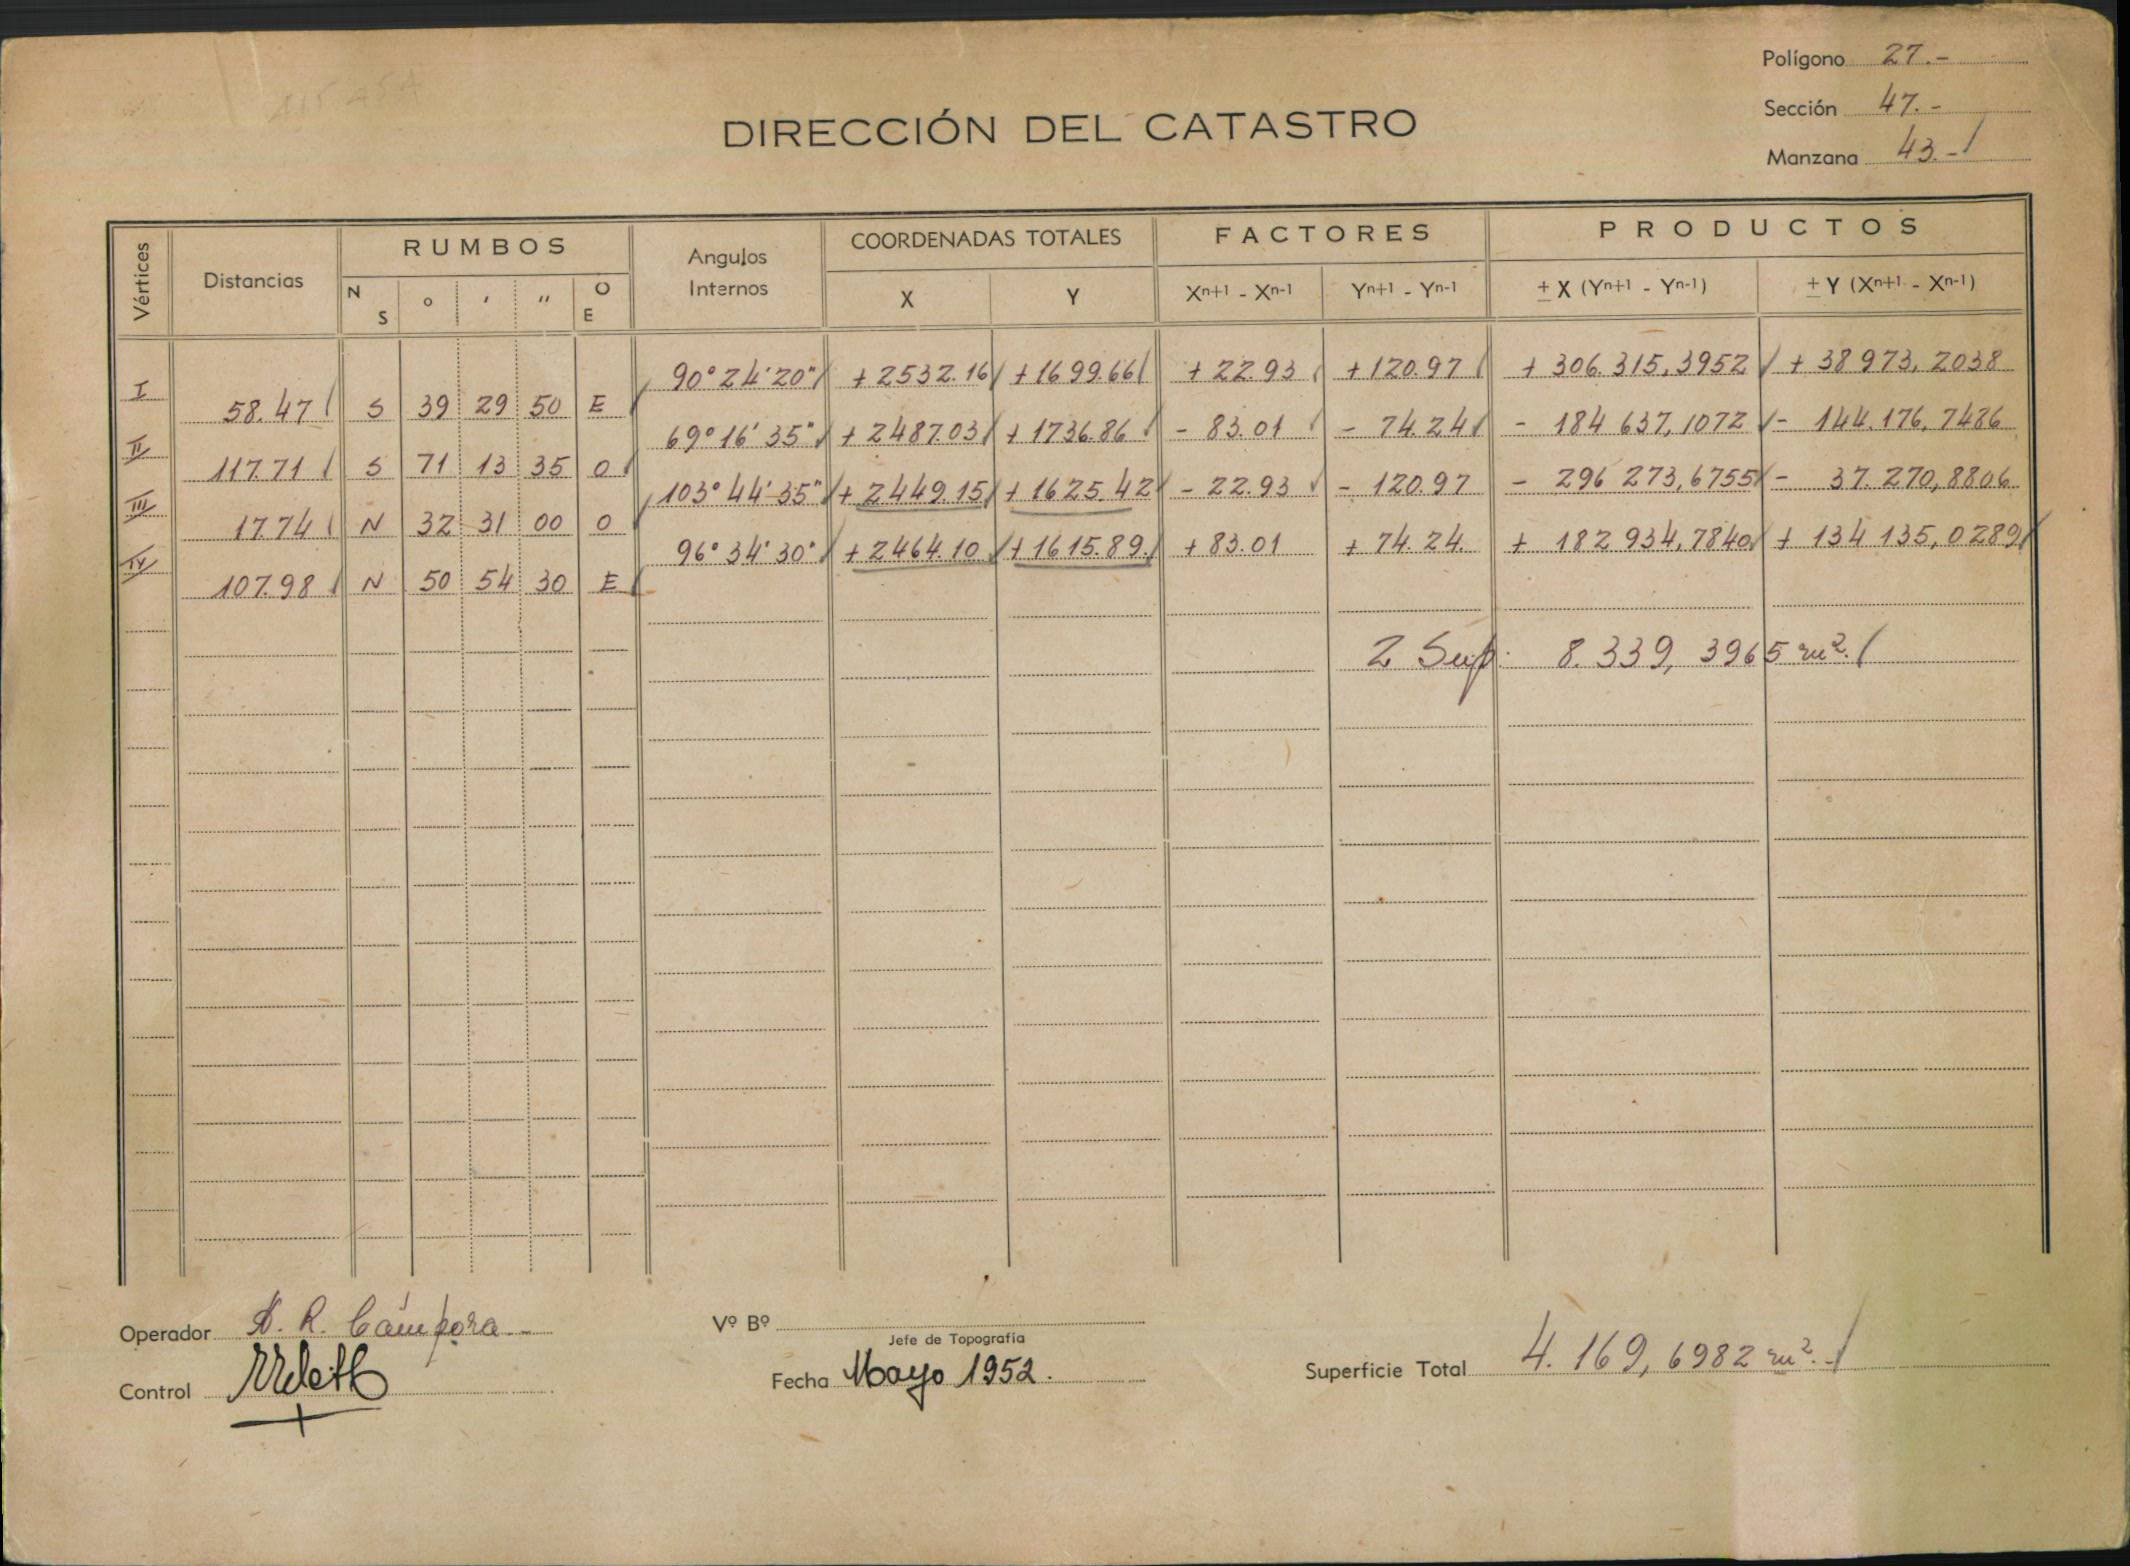 Polígono 27.-
Sección 47.-
Manzana 43.-
DIRECCIÓN DEL CATASTRO
Vértices Distancias RUMBOS Angulos Internos COORDENADAS TOTALES FACTORES PRODUCTOS
N S o ' " O E X Y Xn+1 - Xn-1 Yn+1 - Yn-1 ± X (Yn+1 - Yn-1) ± Y (Xn+1 - Xn-1)
I 90° 24' 20" + 2532.16 + 1699.66 + 22.93 + 120.97 + 306.315,3952 + 38 973,2038
58.47 S 39 29 50 E
II 69° 16' 35" + 2487.03 + 1736.86 - 83.01 - 74.24 - 184 637,1072 - 144.176,7486
117.71 S 71 13 35 O
III 103° 44' 35" + 2449.15 + 1625.42 - 22.93 - 120.97 - 296 273,6755 - 37.270,8806
17.74 N 32 31 00 O
IV 96° 34' 30" + 2464.10 + 1615.89 + 83.01 + 74.24. + 182 934,7840 + 134 135,0289
107.98 N 50 54 30 E
2 Sup. 8.339,3965 m².
Operador A. R. Cámpora
Vº Bº
Jefe de Topografía
Control
Fecha Mayo 1952.
Superficie Total 4.169,6982 m².-